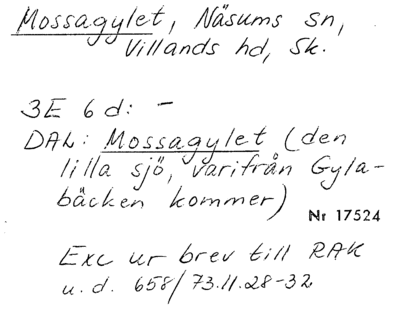 Mossagylet, Näsums sn,
Villands hd, Sk.
3E 6d: -
DAL: Mossagylet (den
lilla sjö, varifrån Gyla-
bäcken kommer)
Nr 17524
Exc ur brev till RAK
u.d. 658/73.11.28-32